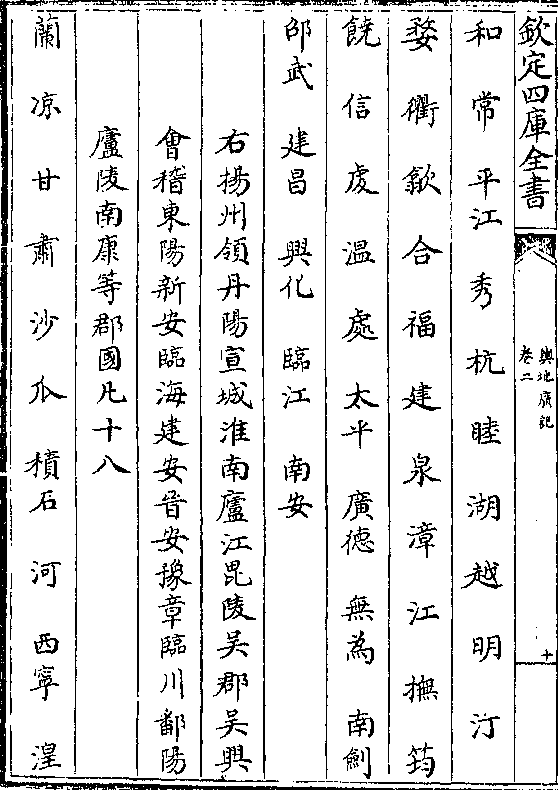 欽定四庫全書
輿地廣記
卷二
十
和 常 平江 秀 杭 睦 湖 越 明 汀
婺 衢 歙 合 福 建 泉 漳 江 撫 筠
饒 信 䖍 溫 處 太平 廣德 無為 南劍
邵武 建昌 興化 臨江 南安
右揚州領丹陽宣城淮南廬江毘陵吳郡吳興
會稽東陽新安臨海建安晉安豫章臨川鄱陽
廬陵南康等郡國凡十八
蘭 凉 甘 肅 沙 瓜 積石 河 西寧 湟